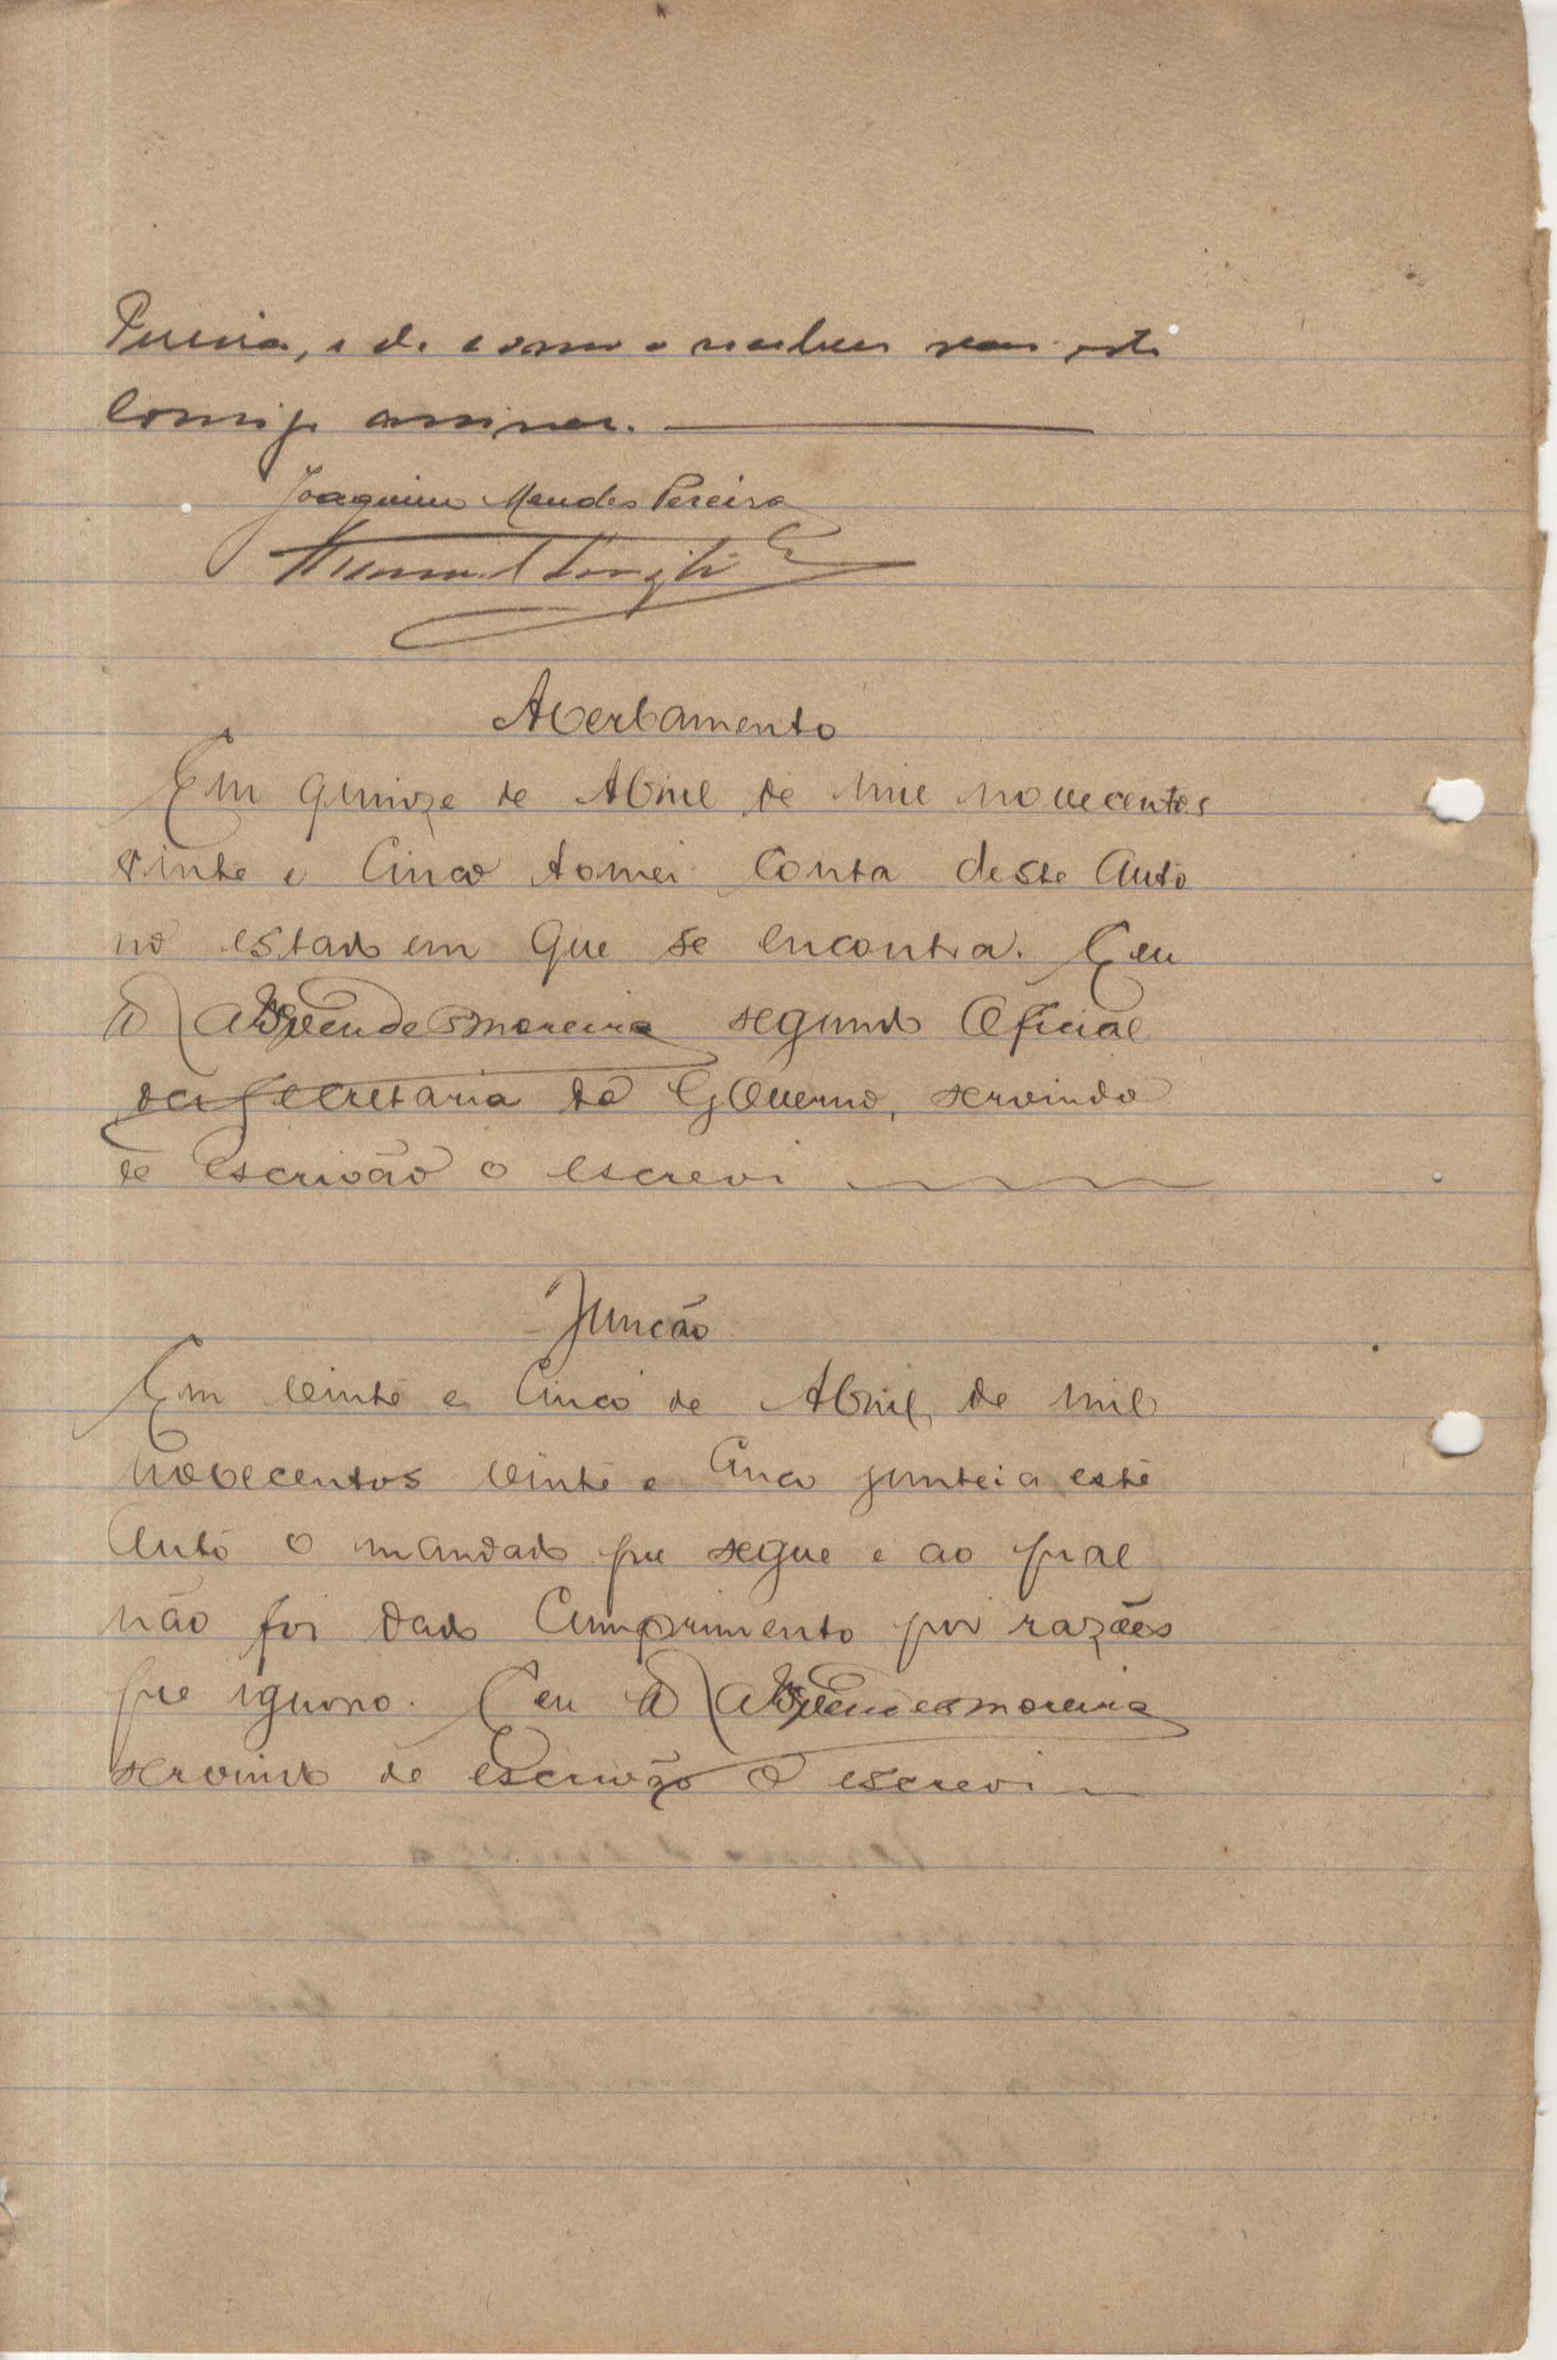 Pereira, e de como o recebeu vem este
comigo assinar.
Joaquim Mendes Pereira
Averbamento
Em quinze de Abril de mil novecentos
vinte e cinco tomei conta deste auto
no estado em que se encontra. E eu
Moreira segundo oficial
da Secretaria do Governo, servindo
de escrivão o escrevi
Junção
Em vinte e cinco de Abril de mil
novecentos vinte e cinco juntei a este
auto o mandado que segue e ao qual
não foi dado cumprimento por razões
que ignoro. E eu Moreira
servindo de escrivão o escrevi